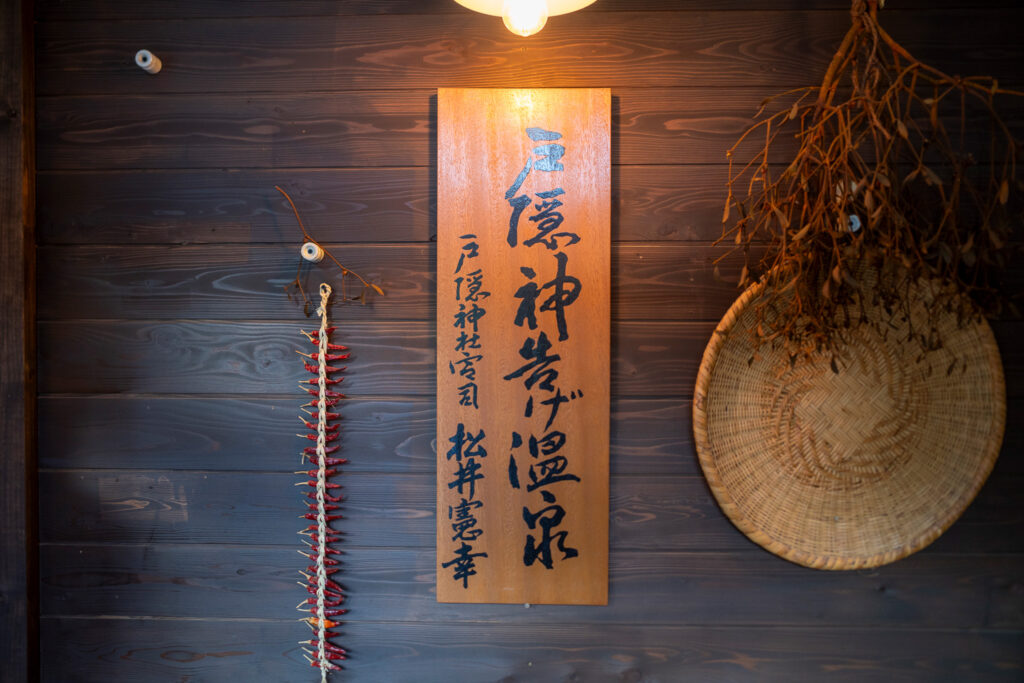 戸隠神告げ温泉
戸隠神社宮司 松井憲幸